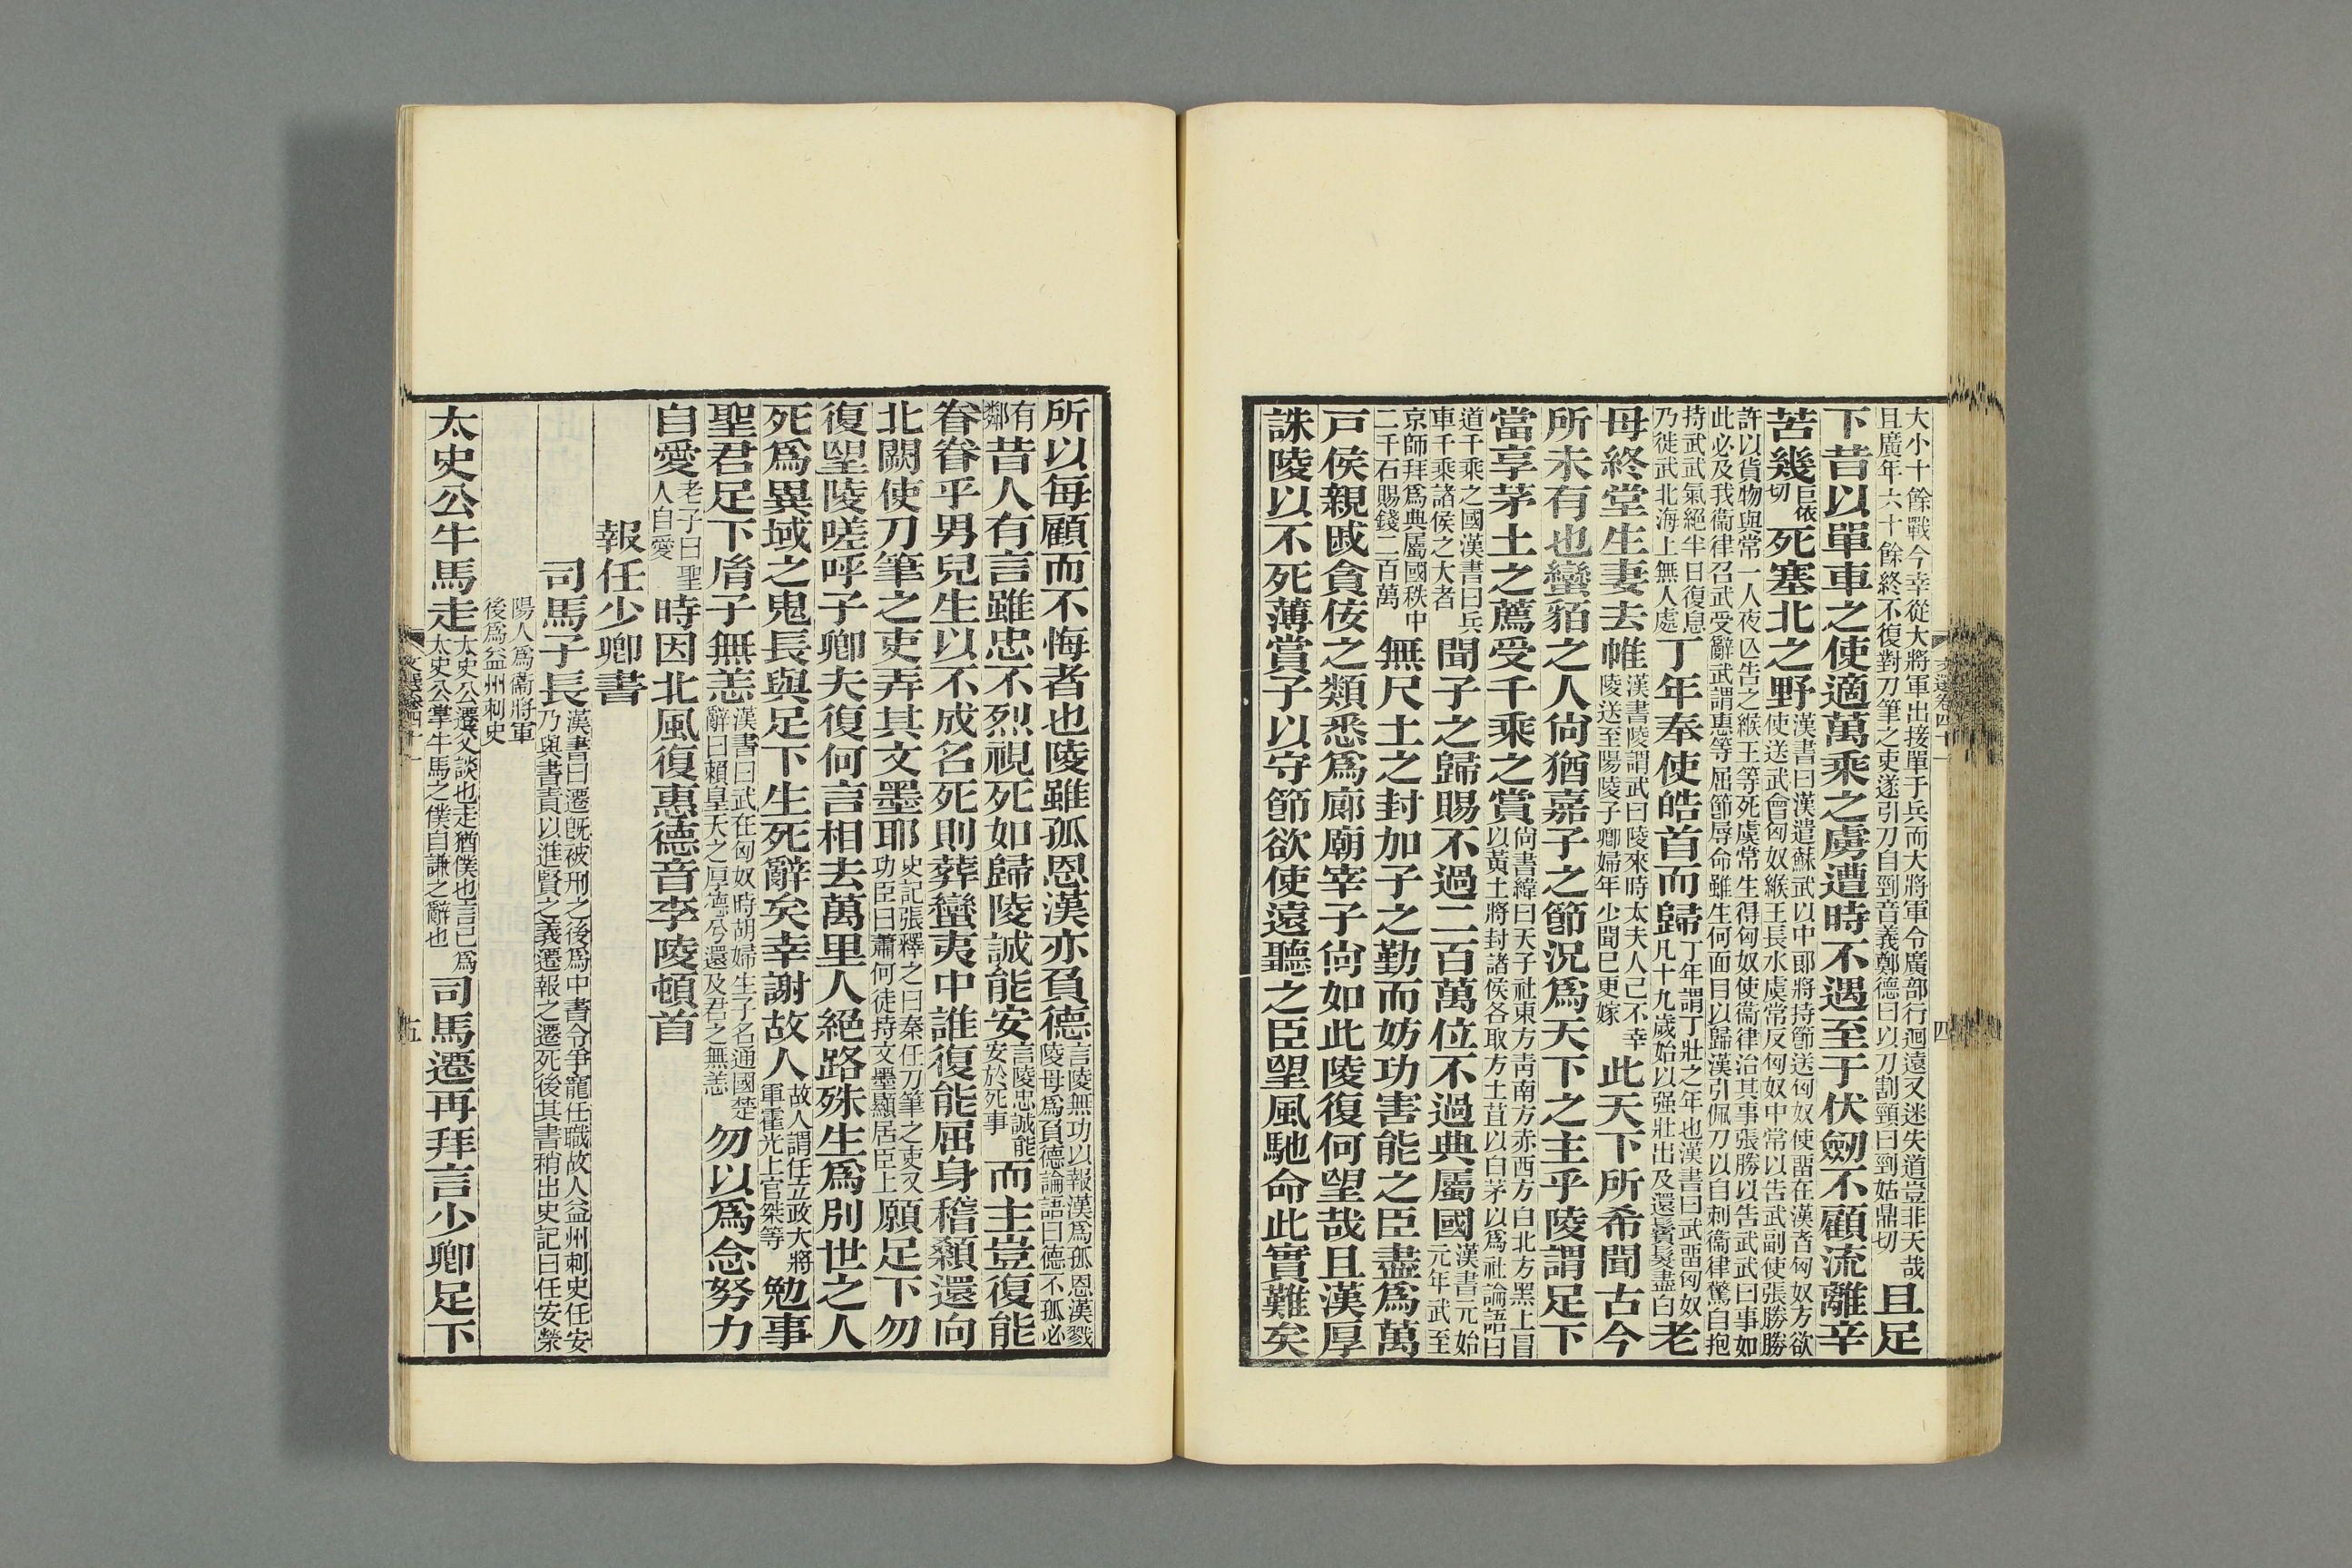 大小十餘戰今幸從大將軍出接單于兵而大將軍令廣部行迴遠又迷失道豈非天哉
且廣年六十餘終不復對刀筆之吏遂引刀自剄音義鄭德曰以刀割頸曰剄姑鼎切
且足
下昔以單車之使適萬乘之虜遭時不遇至于伏劒不顧流離辛
苦幾巨依切死塞北之野漢書曰漢遣蘇武以中郎將持節送匈奴使畱在漢者匈奴方欲
使送武會匈奴緱王長水虞常反匈奴中常以告武副使張勝勝
許以貨物與常一人夜亾告之緱王等死虞常生得匈奴使衞律治其事張勝以告武武曰事如
此必及我衞律召武受辭武謂惠等屈節辱命雖生何面目以歸漢引佩刀以自刺衞律驚自抱
持武武氣絕半日復息
乃徙武北海上無人處
丁年奉使皓首而歸丁年謂丁壯之年也漢書曰武畱匈奴
凡十九歲始以强壯出及還鬚髮盡白
老
母終堂生妻去帷漢書陵謂武曰陵來時太夫人已不幸
陵送至陽陵子卿婦年少聞已更嫁
此天下所希聞古今
所未有也蠻貊之人尙猶嘉子之節況爲天下之主乎陵謂足下
當享茅土之薦受千乘之賞尙書緯曰天子社東方靑南方赤西方白北方黑上冒
以黃土將封諸侯各取方土苴以白茅以爲社論語曰
道千乘之國漢書曰兵
車千乘諸侯之大者
聞子之歸賜不過二百萬位不過典屬國漢書元始
元年武至
京師拜爲典屬國秩中
二千石賜錢二百萬
無尺土之封加子之勤而妨功害能之臣盡爲萬
戸侯親戚貪佞之類悉爲廊廟宰子尙如此陵復何望哉且漢厚
誅陵以不死薄賞子以守節欲使遠聽之臣望風馳命此實難矣
文選卷四十一
四
所以每顧而不悔者也陵雖孤恩漢亦負德言陵無功以報漢爲孤恩漢戮
陵母爲負德論語曰德不孤必
有
鄰
昔人有言雖忠不烈視死如歸陵誠能安言陵忠誠能
安於死事
而主豈復能
眷眷乎男兒生以不成名死則葬蠻夷中誰復能屈身稽顙還向
北闕使刀筆之吏弄其文墨耶史記張釋之曰秦任刀筆之吏又
功臣曰蕭何徒持文墨顯居臣上
願足下勿
復望陵嗟呼子卿夫復何言相去萬里人絕路殊生爲別世之人
死爲異域之鬼長與足下生死辭矣幸謝故人故人謂任立政大將
軍霍光上官桀等
勉事
聖君足下胤子無恙漢書曰武在匈奴時胡婦生子名通國楚
辭曰賴皇天之厚德兮還及君之無恙
勿以爲念努力
自愛老子曰聖
人自愛
時因北風復惠德音李陵頓首
報任少卿書
司馬子長漢書曰遷旣被刑之後爲中書令爭寵任職故人益州刺史任安
乃與書責以進賢之義遷報之遷死後其書稍出史記曰任安滎
陽人爲衞將軍
後爲益州刺史
太史公牛馬走太史公遷父談也走猶僕也言己爲
太史公掌牛馬之僕自謙之辭也
司馬遷再拜言少卿足下
五